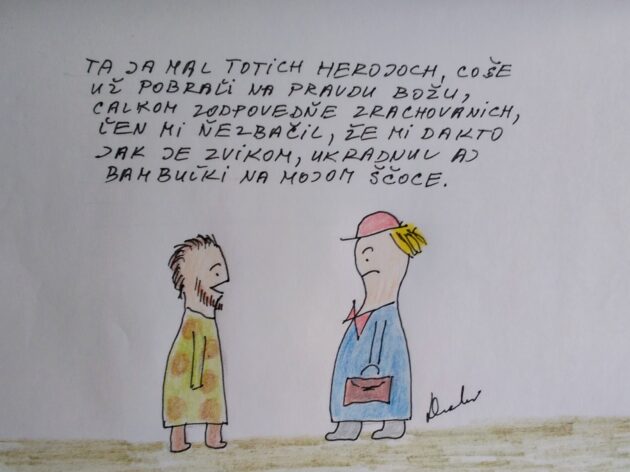 TA JA MAL TOTICH HEROJOCH, COŠE
UŽ POBRAĽI NA PRAVDU BOŽU,
CALKOM ZODPOVEDŇE ZRACHOVANICH,
ĽEN MI ŇEZBAČIL, ŽE MI DAKTO
JAK JE ZVIKOM, UKRADNUL AJ
BAMBUĽKI NA MOJOM ŠČOCE.